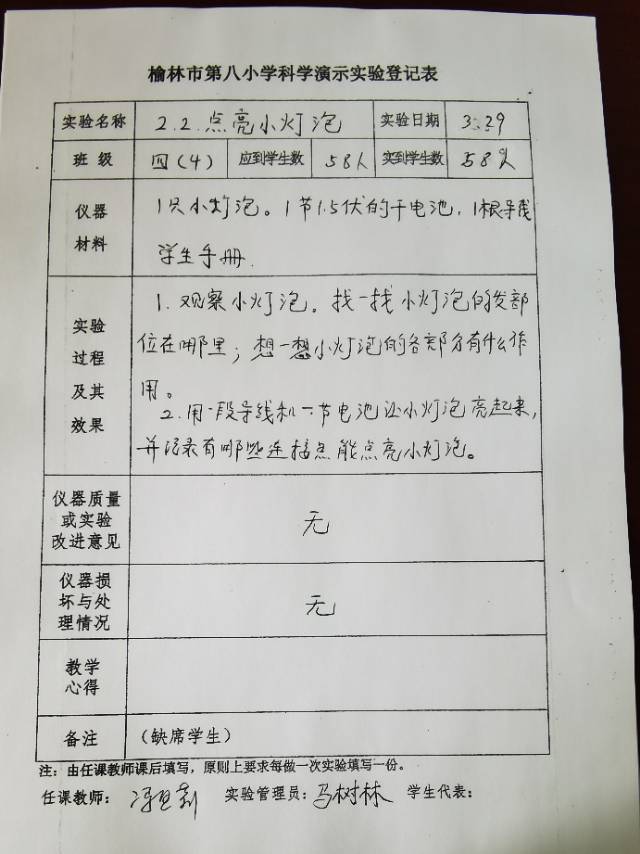 榆林市第八小学科学演示实验登记表
实验名称 2.2.点亮小灯泡 实验日期 3.29
班 级 四(4) 应到学生数 58人 实到学生数 58人
仪器
材料
1只小灯泡。1节1.5伏的干电池,1根导线
学生手册.
实验
过程
及其
效果
1. 观察小灯泡。找一找小灯泡的发部
位在哪里;想一想小灯泡的各部分有什么作
用。
2. 用一段导线和一节电池让小灯泡亮起来,
并记录有哪些连接点能点亮小灯泡。
仪器质量
或实验
改进意见
无
仪器损
坏与处
理情况
无
教学
心得
备注 (缺席学生)
注:由任课教师课后填写,原则上要求每做一次实验填写一份。
任课教师: 实验管理员:马树林 学生代表: